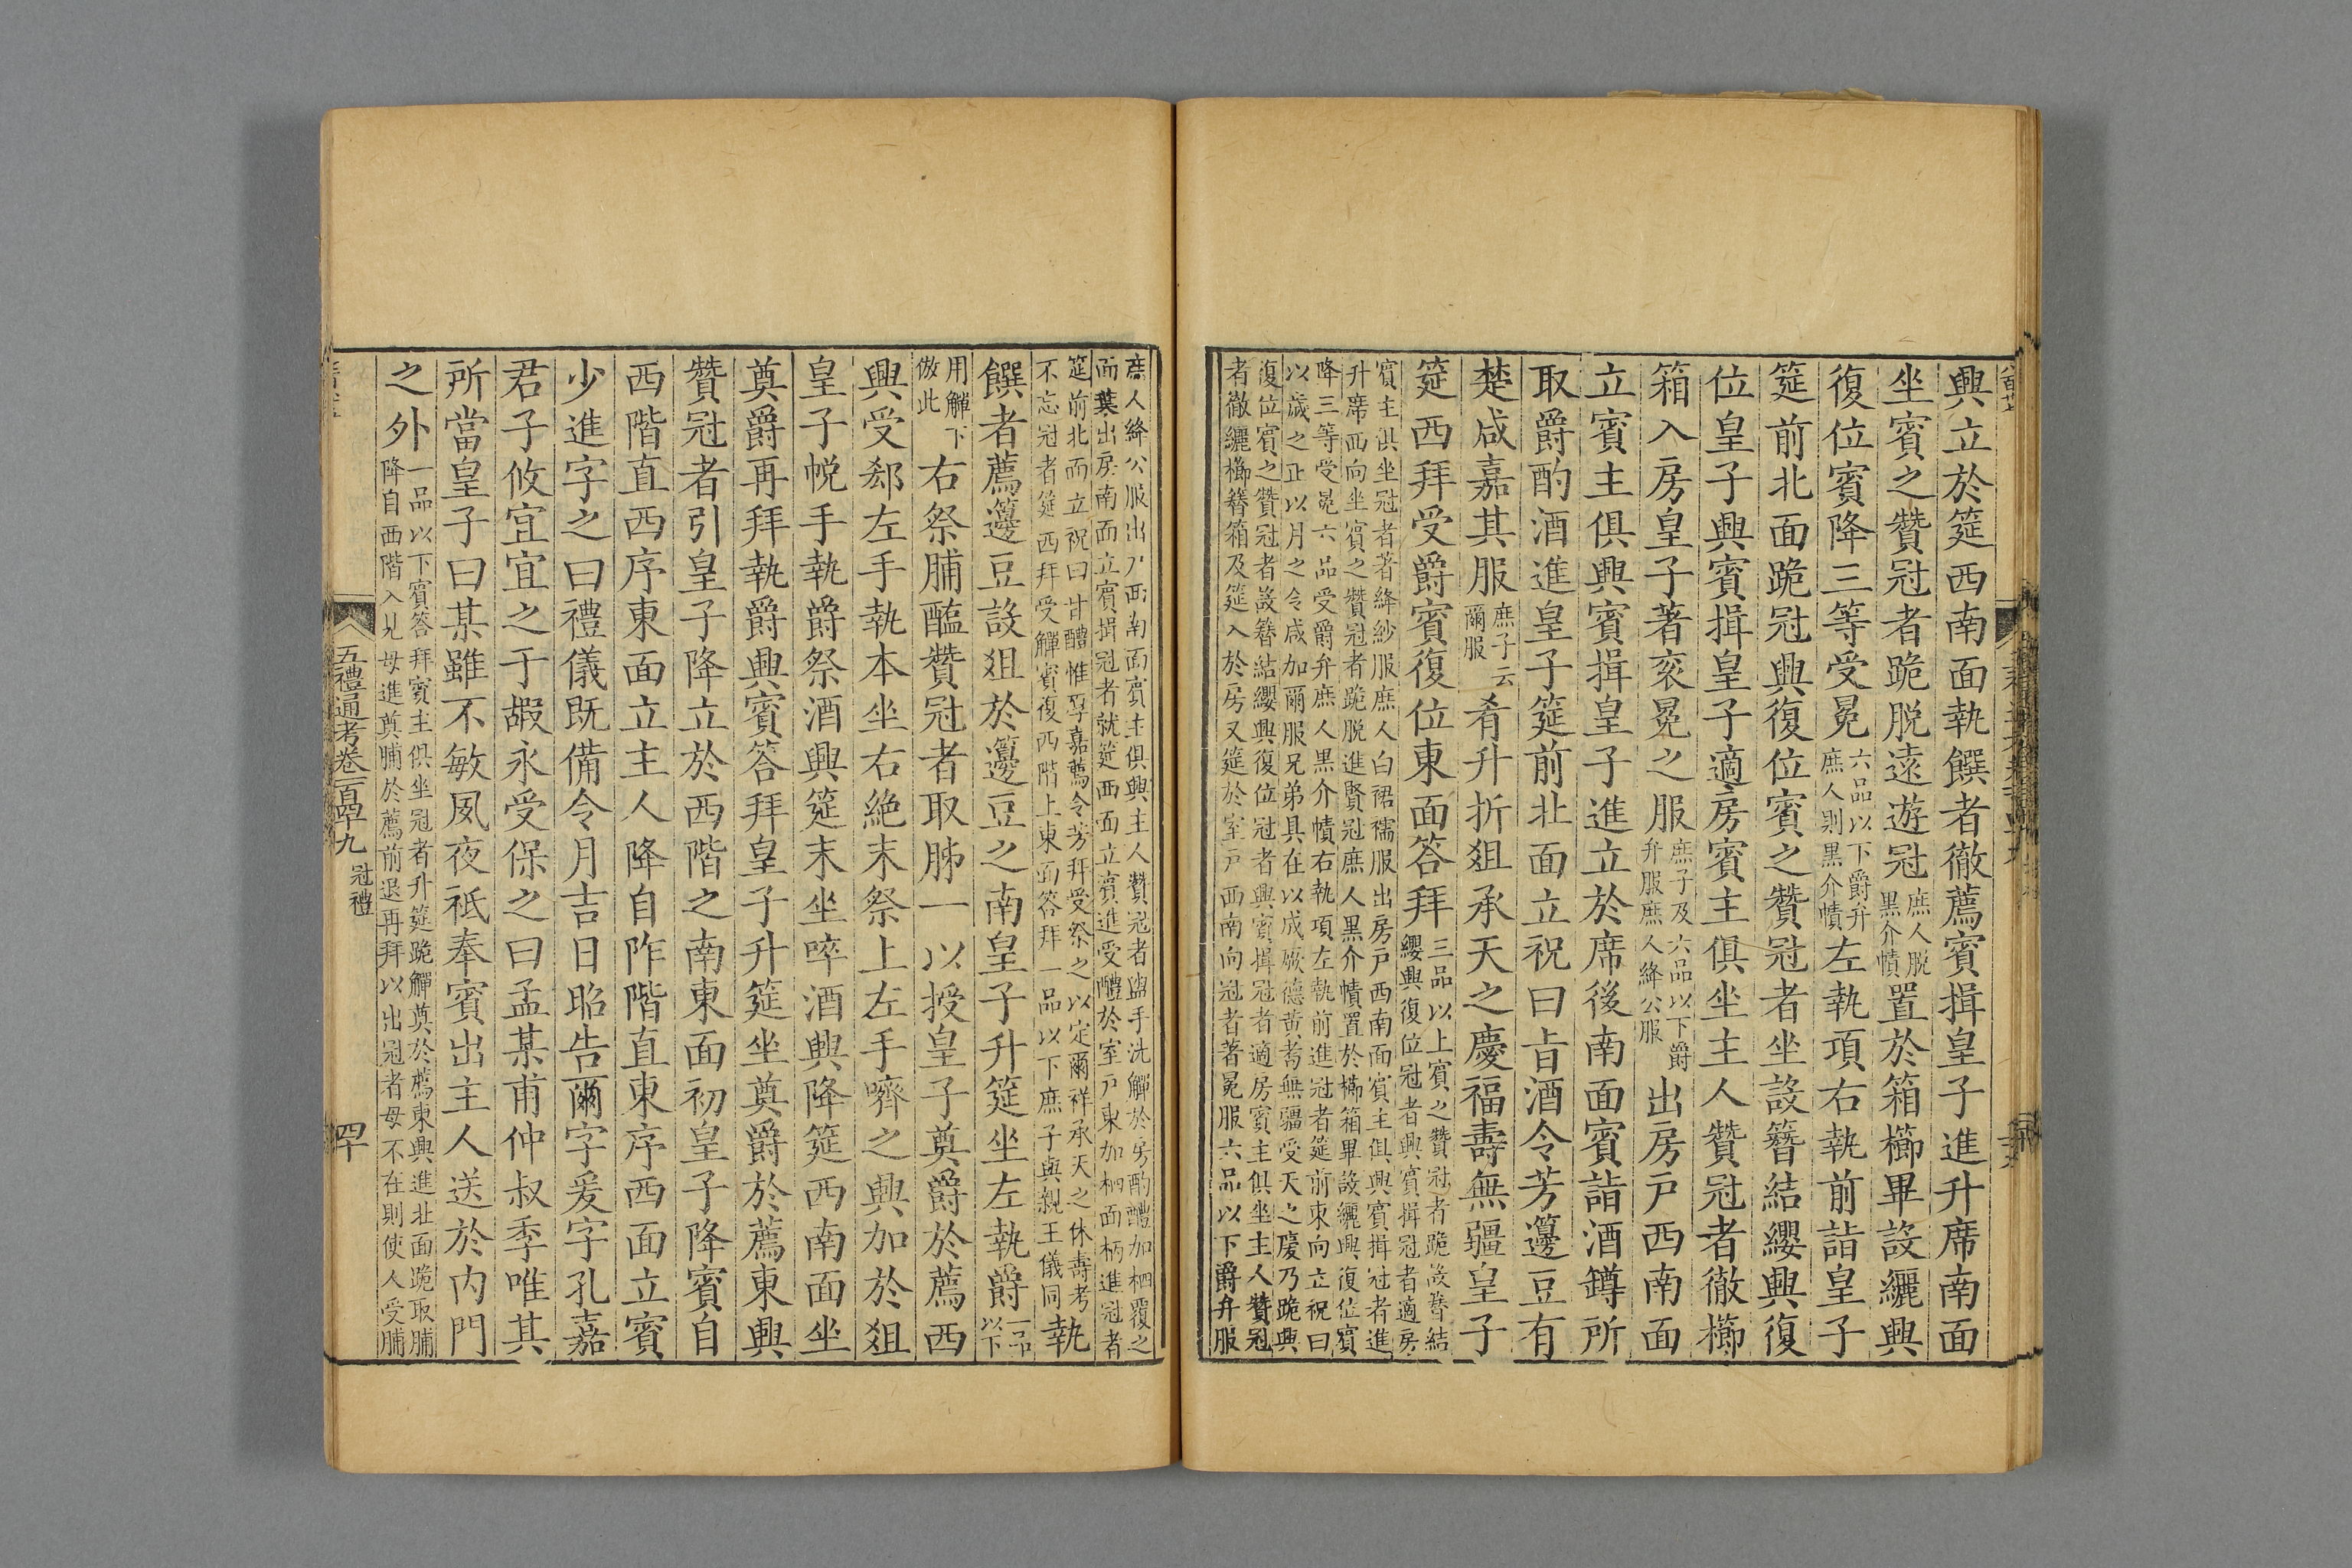 興立於筵西南面執饌者徹薦賓揖皇子進升席南面
坐賓之贊冠者跪脫遠遊冠庶人脫黑介幘置於箱櫛畢設纚興
復位賓降三等受冕六品以下爵弁庶人則黑介幘左執項右執前詣皇子
筵前北面跪冠興復位賓之贊冠者坐設簪結纓興復
位皇子興賓揖皇子適房賓主俱坐主人贊冠者徹櫛
箱入房皇子著衮冕之服庶子及六品以下爵弁服庶人絳公服出房戸西南面
立賓主俱興賓揖皇子進立於席後南面賓詣酒罇所
取爵酌酒進皇子筵前北面立祝曰旨酒令芳籩豆有
楚咸嘉其服庶子云爾服肴升折俎承天之慶福壽無疆皇子
筵西拜受爵賓復位東面答拜三品以上賓之贊冠者跪設簪結
纓興復位冠者興賓揖冠者適房
賓主俱坐冠者著絳紗服庶人白裙襦服出房戸西南面賓主俱興賓揖冠者進
升席西向坐賓之贊冠者跪脫進賢冠庶人黑介幘置於櫛箱畢設纚興復位賓
降三等受冕六品受爵弁庶人黑介幘右執項左執前進冠者筵前東向立祝曰
以歲之正以月之令咸加爾服兄弟具在以成厥德黄耇無疆受天之慶乃跪興
復位賓之贊冠者設簪結纓興復位冠者興賓揖冠者適房賓主俱坐主人贊冠
者徹纚櫛簪箱及筵入於房又筵於室戸西南向冠者著冕服六品以下爵弁服
庶人絳公服出戸西南面賓主俱興主人贊冠者盥手洗觶於房酌醴加柶覆之
面葉出房南面立賓揖冠者就筵西面立賓進受醴於室戸東加柶面柄進冠者
筵前北面立祝曰甘醴惟厚嘉薦令芳拜受祭之以定爾祥承天之休壽考
不忘冠者筵西拜受觶賓復西階上東面答拜一品以下庶子與親王儀同執
饌者薦籩豆設俎於籩豆之南皇子升筵坐左執爵一品以下
用觶下倣此右祭脯醢贊冠者取胏一以授皇子奠爵於薦西
興受郄左手執本坐右絶末祭上左手嚌之興加於俎
皇子帨手執爵祭酒興筵末坐啐酒興降筵西南面坐
奠爵再拜執爵興賓答拜皇子升筵坐奠爵於薦東興
贊冠者引皇子降立於西階之南東面初皇子降賓自
西階直西序東面立主人降自阼階直東序西面立賓
少進字之曰禮儀既備令月吉日昭告爾字爰字孔嘉
君子攸宜宜之于嘏永受保之曰孟某甫仲叔季唯其
所當皇子曰某雖不敏夙夜祗奉賓出主人送於内門
之外一品以下賓答拜賓主俱坐冠者升筵跪觶奠於薦東興進北面跪取脯
降自西階入見母進奠脯於薦前退再拜以出冠者母不在則使人受脯
五禮通考卷一百四十九 冠禮
四十